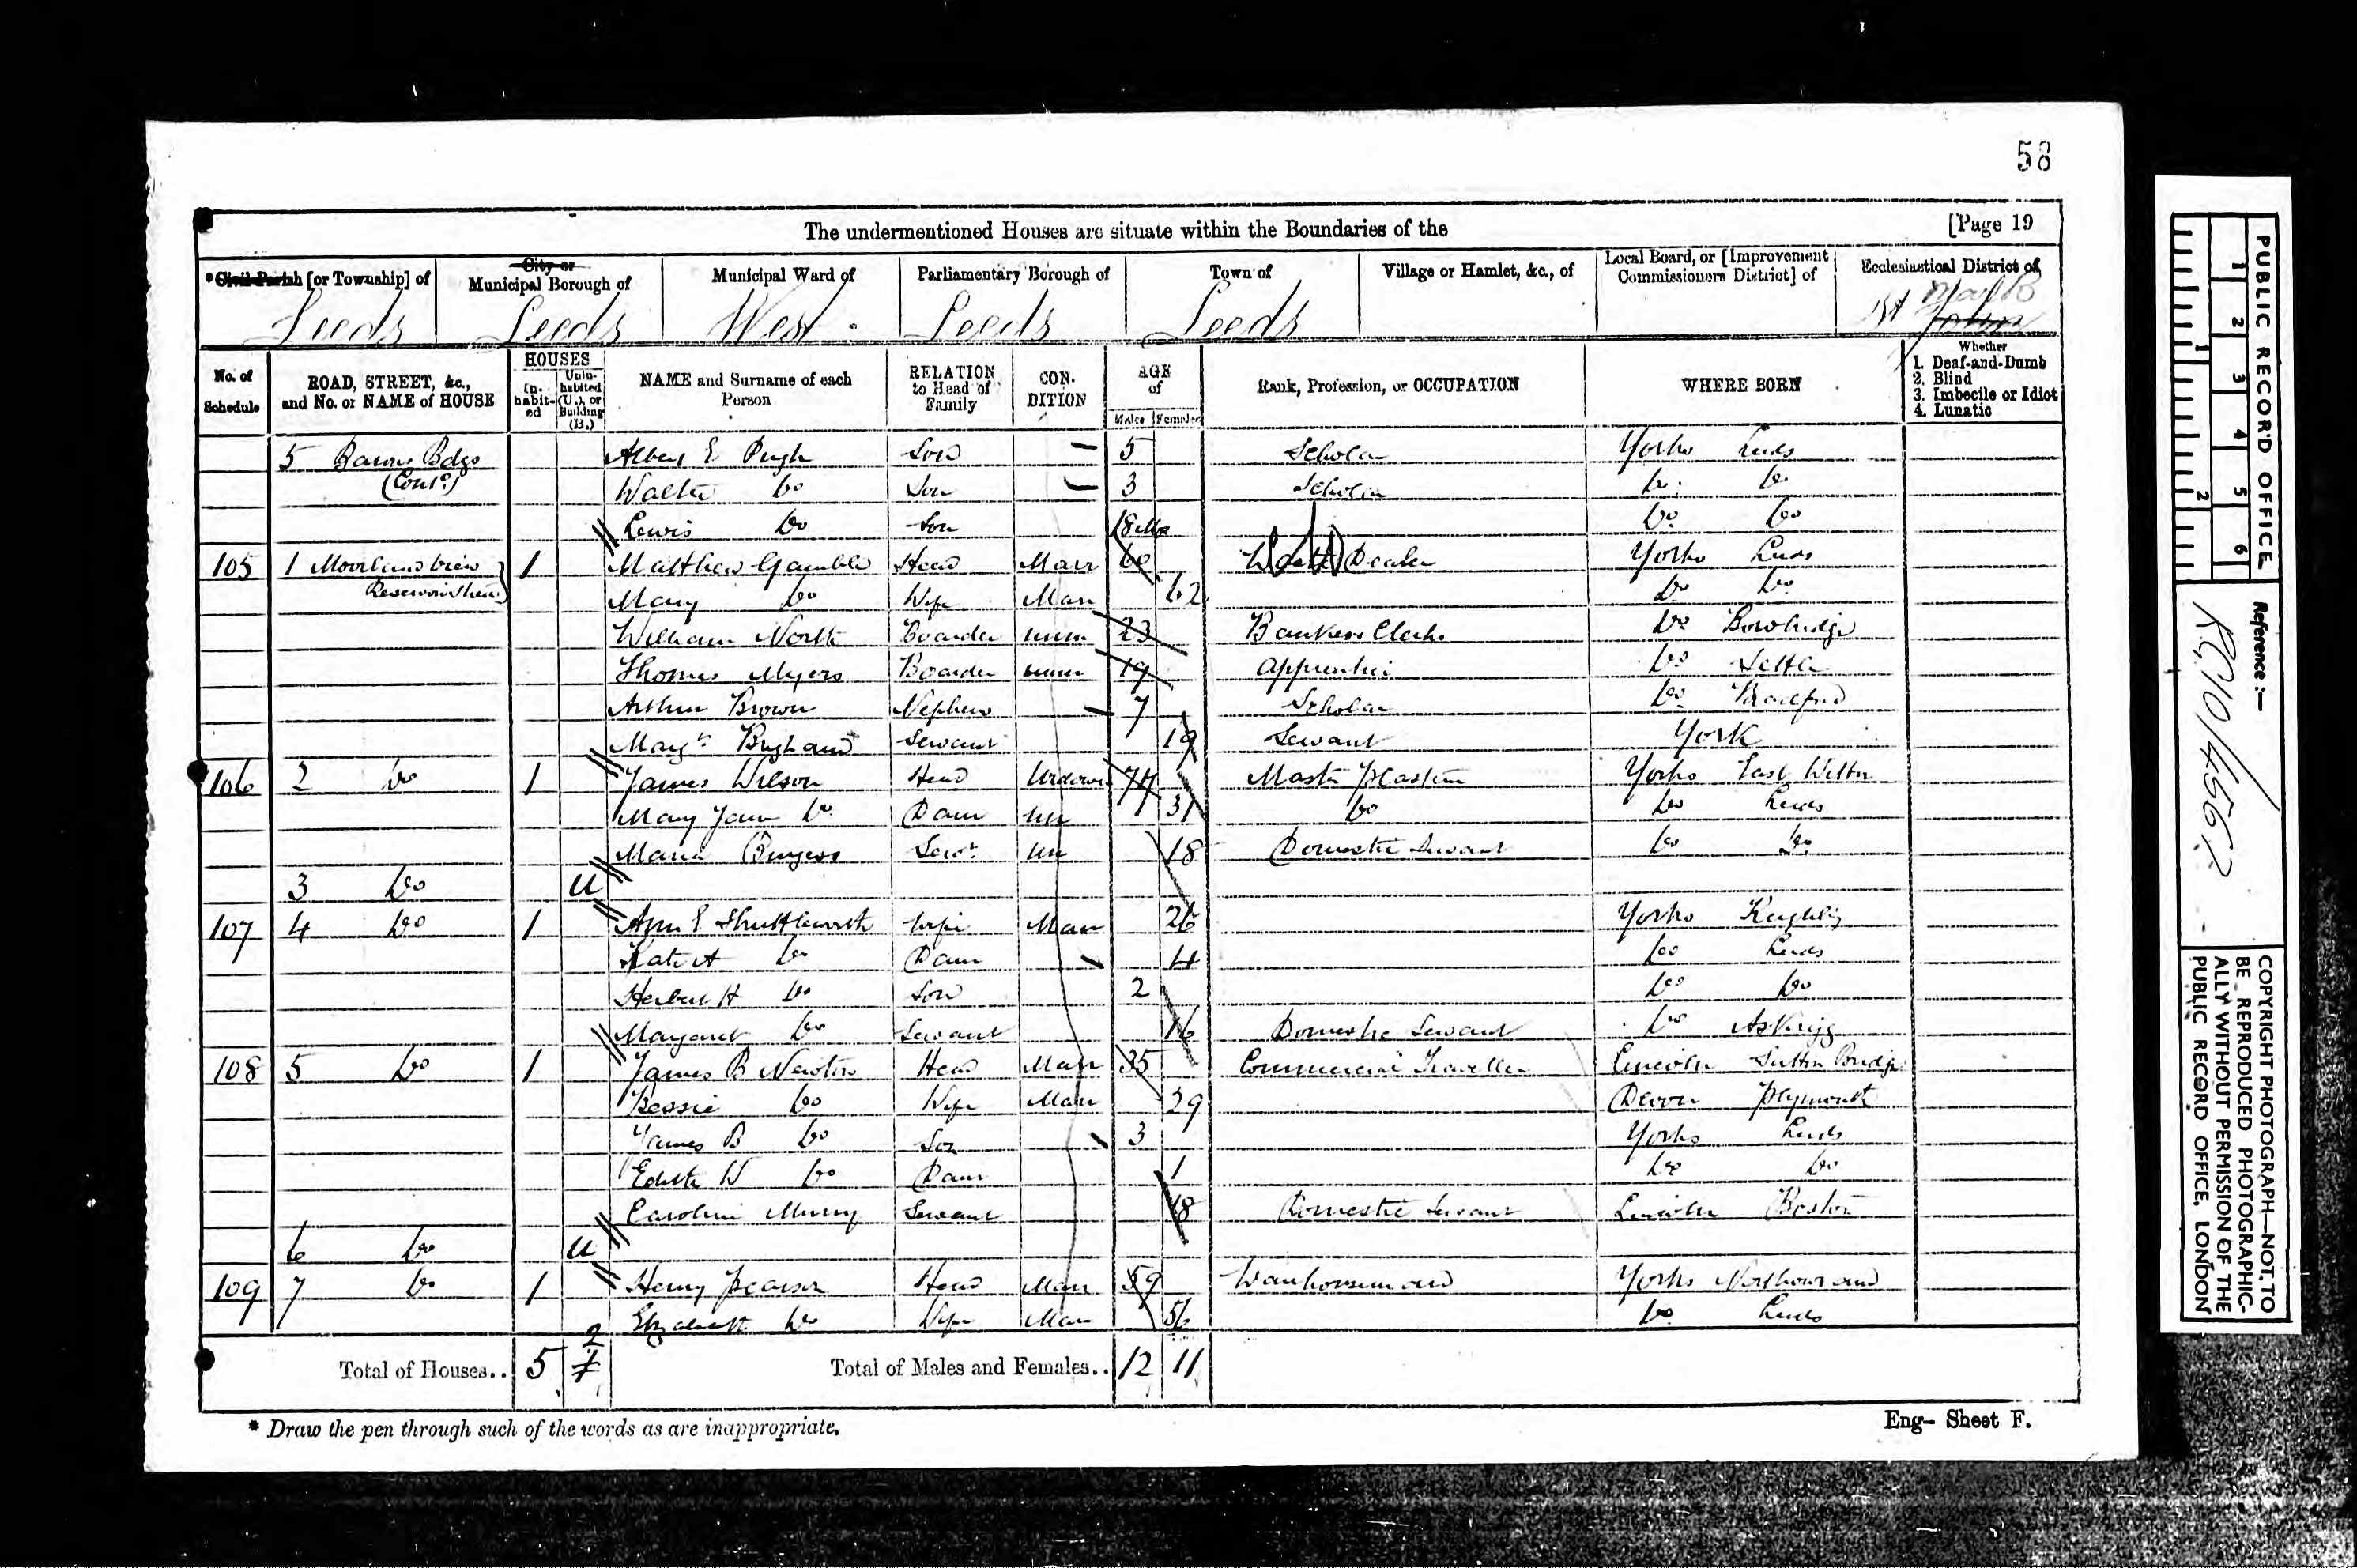 58
The undermentioned Houses are situate within the Boundaries of the [Page 19
*Civil Parish [or Township] of Leeds
City or Municipal Borough of Leeds
Municipal Ward of West
Parliamentary Borough of Leeds
Town of Leeds
Village or Hamlet, &c., of
Local Board, or [Improvement Commissioners District] of
Ecclesiastical District of St John
No. of Schedule
ROAD, STREET, &c., and No. or NAME of HOUSE
HOUSES
In-habit-ed
Unin-habited (U.), or Building (B.)
NAME and Surname of each Person
RELATION to Head of Family
CON-DITION
AGE of
Males Females
Rank, Profession, or OCCUPATION
WHERE BORN
Whether
1. Deaf-and-Dumb
2. Blind
3. Imbecile or Idiot
4. Lunatic
5 Bdgs Albert E Pugh Son 5 Scholar Yorks Leeds
(Contd) Walter Do Son 3 Scholar Do Do
Lewis Do Son 18 Mos Do Do
105 1 Moorland View 1 Matthew Gamble Head Marr 60 Dealer Yorks Leeds
Mary Do Wife Marr 62 Do Do
William North Boarder unm 23 Bankers Clerk Do
Thomas Myers Boarder unm 19 Apprentice Do Settle
Arthur Brown Nephew 7 Scholar Do Bradford
Servant 19 Servant York
106 2 Do 1 James Wilson Head Widower 74 Master Plasterer Yorks East Witton
Mary Jane Do Daur un 31 Do Do Leeds
Maria Burgess Servt un 18 Domestic Servant Do Do
3 Do U
107 4 Do 1 Ann E Shuttleworth Wife Marr 26 Yorks Keighley
Kate A Do Daur 4 Do Leeds
Herbert H Do Son 2 Do Do
Margaret Do Servant 16 Domestic Servant Do Askrigg
108 5 Do 1 James B Newton Head Marr 35 Commercial Traveller Lincoln Sutton Bridge
Bessie Do Wife Marr 29 Devon Plymouth
James B Do Son 3 Yorks Leeds
Edith W Do Daur 1 Do Do
Caroline Servant 18 Domestic Servant Lincoln Boston
6 Do U
109 7 Do 1 Henry Pearson Head Marr 59 Warehouseman Yorks Northowram
Elizabeth Do Wife Marr 56 Do Leeds
2
Total of Houses.. 5 Total of Males and Females.. 12 11
* Draw the pen through such of the words as are inappropriate.
Eng- Sheet F.
PUBLIC RECORD OFFICE
1 2 3 4 5 6
1 2
Reference :-
RG10/4562
COPYRIGHT PHOTOGRAPH—NOT TO
BE REPRODUCED PHOTOGRAPHIC-
ALLY WITHOUT PERMISSION OF THE
PUBLIC RECORD OFFICE, LONDON